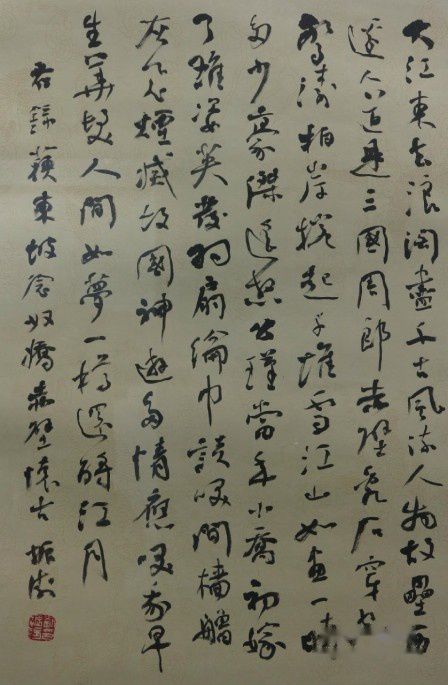 大江東去浪淘盡千古風流人物故壘西
邊人道是三國周郎赤壁亂石穿空
驚濤拍岸捲起千堆雪江山如畫一時
多少豪傑遙想公瑾當年小喬初嫁
了雄姿英發羽扇綸巾談咲間檣艣
灰飛煙滅故國神遊多情應咲我早
生華髮人間如夢一樽還酹江月
右錄蘇東坡念奴嬌赤壁懷古